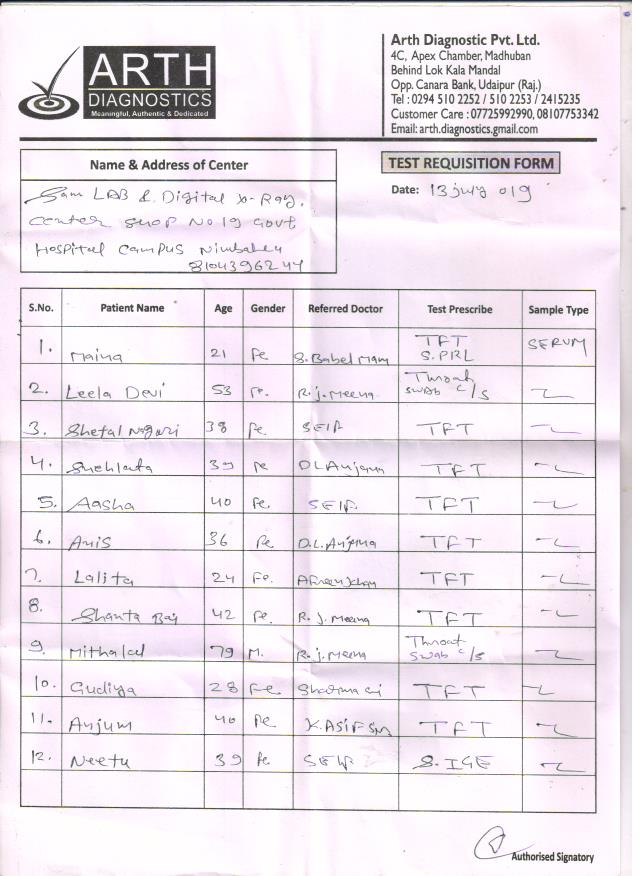 ARTH
DIAGNOSTICS
Meaningful, Authentic & Dedicated
Arth Diagnostic Pvt. Ltd.
4C, Apex Chamber, Madhuban
Behind Lok Kala Mandal
Opp. Canara Bank, Udaipur (Raj.)
Tel : 0294 510 2252 / 510 2253 / 2415235
Customer Care : 07725992990, 08107753342
Email: arth.diagnostics.gmail.com
TEST REQUISITION FORM
Date: 13 july 019
Name & Address of Center
Sam LAB & Digital X-Ray.
center shop No 19 Govt
Hospital campus Nimbahey
8104396244
S.No. Patient Name Age Gender Referred Doctor Test Prescribe Sample Type
1. Maina 21 Fe S. Babel Mam TFT S.PRL SERUM
2. Leela Devi 53 Fe. R.j. Meena Throat swab c/s
3. Shefal Nagori 38 Fe. SElF TFT
4. Snehlata 39 Fe DL Anjana TFT
5. Aasha 40 Fe. SElF. TFT
6. Anis 36 Fe D.L. Anjana TFT
7. Lalita 24 Fe. Afreen Khan TFT
8. Shanta Bai 42 Fe. R. J. Meena TFT
9. Mithalal 79 M. R.j. Meena Throat swab c/s
10. Gudiya 28 Fe. Sharma ji TFT
11. Anjum 40 Fe K. ASIF TFT
12. Neetu 39 Fe SElF S. IGE
Authorised Signatory